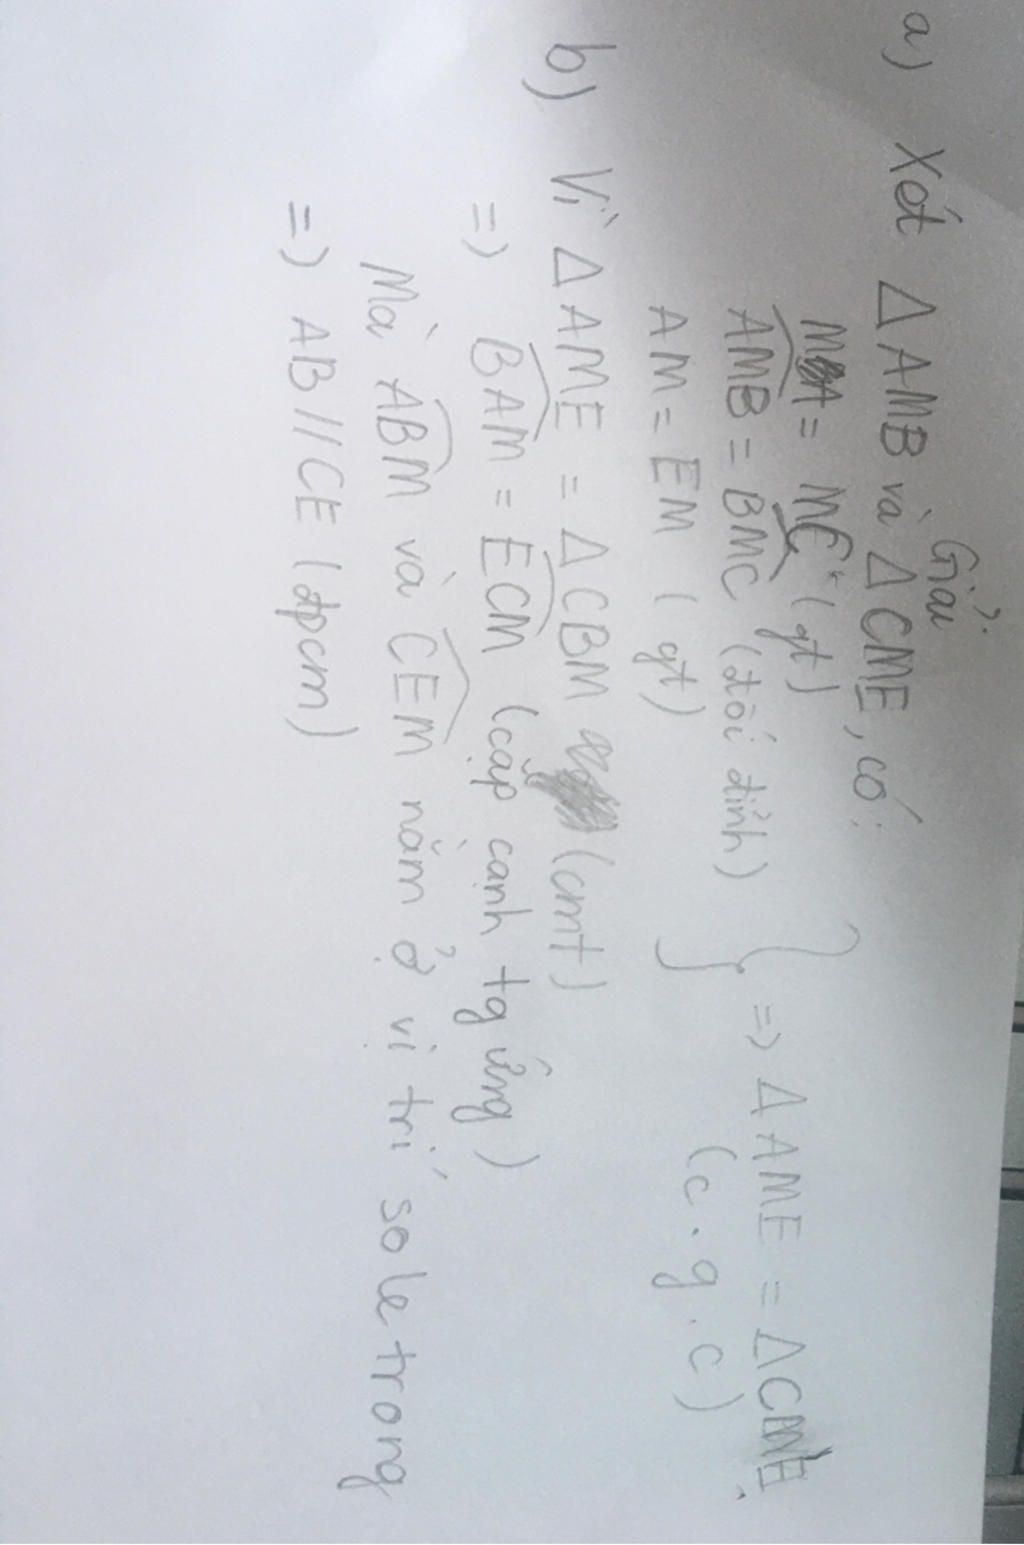 Giải
a) Xét Δ AMB và Δ CME, có:
MA = MC (gt)
AMB = BMC (đối đỉnh)
AM = EM (gt)
=> Δ AME = Δ CME
(c.g.c)
b) Vì Δ AME = Δ CBM (cmt)
=> BAM = ECM (cặp cạnh tg ứng)
Mà ABM và CEM nằm ở vị trí so le trong
=> AB // CE (đpcm)